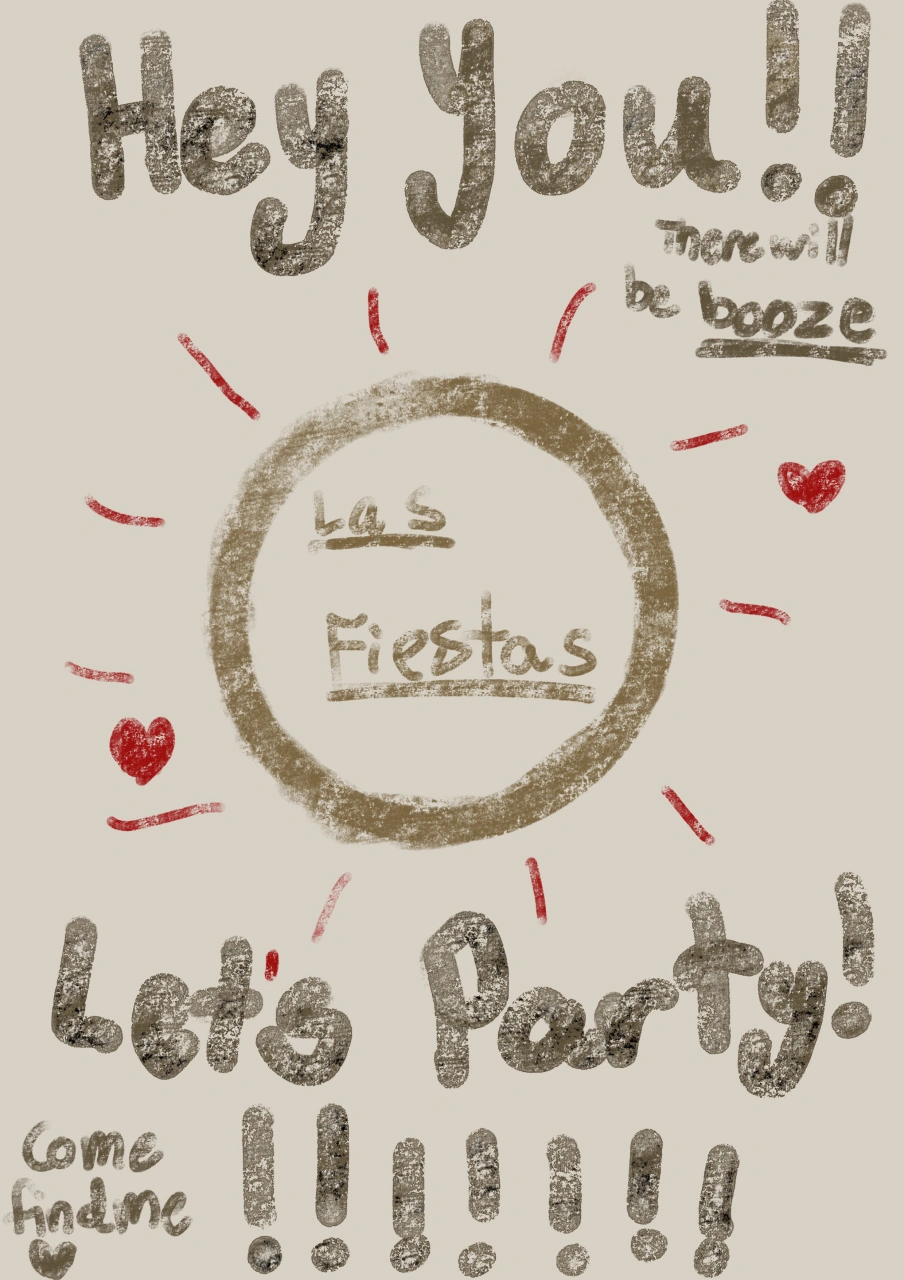 Hey You!!
There will
be booze
Las
Fiestas
Let's Party!
!!!!!!!
Come
find me